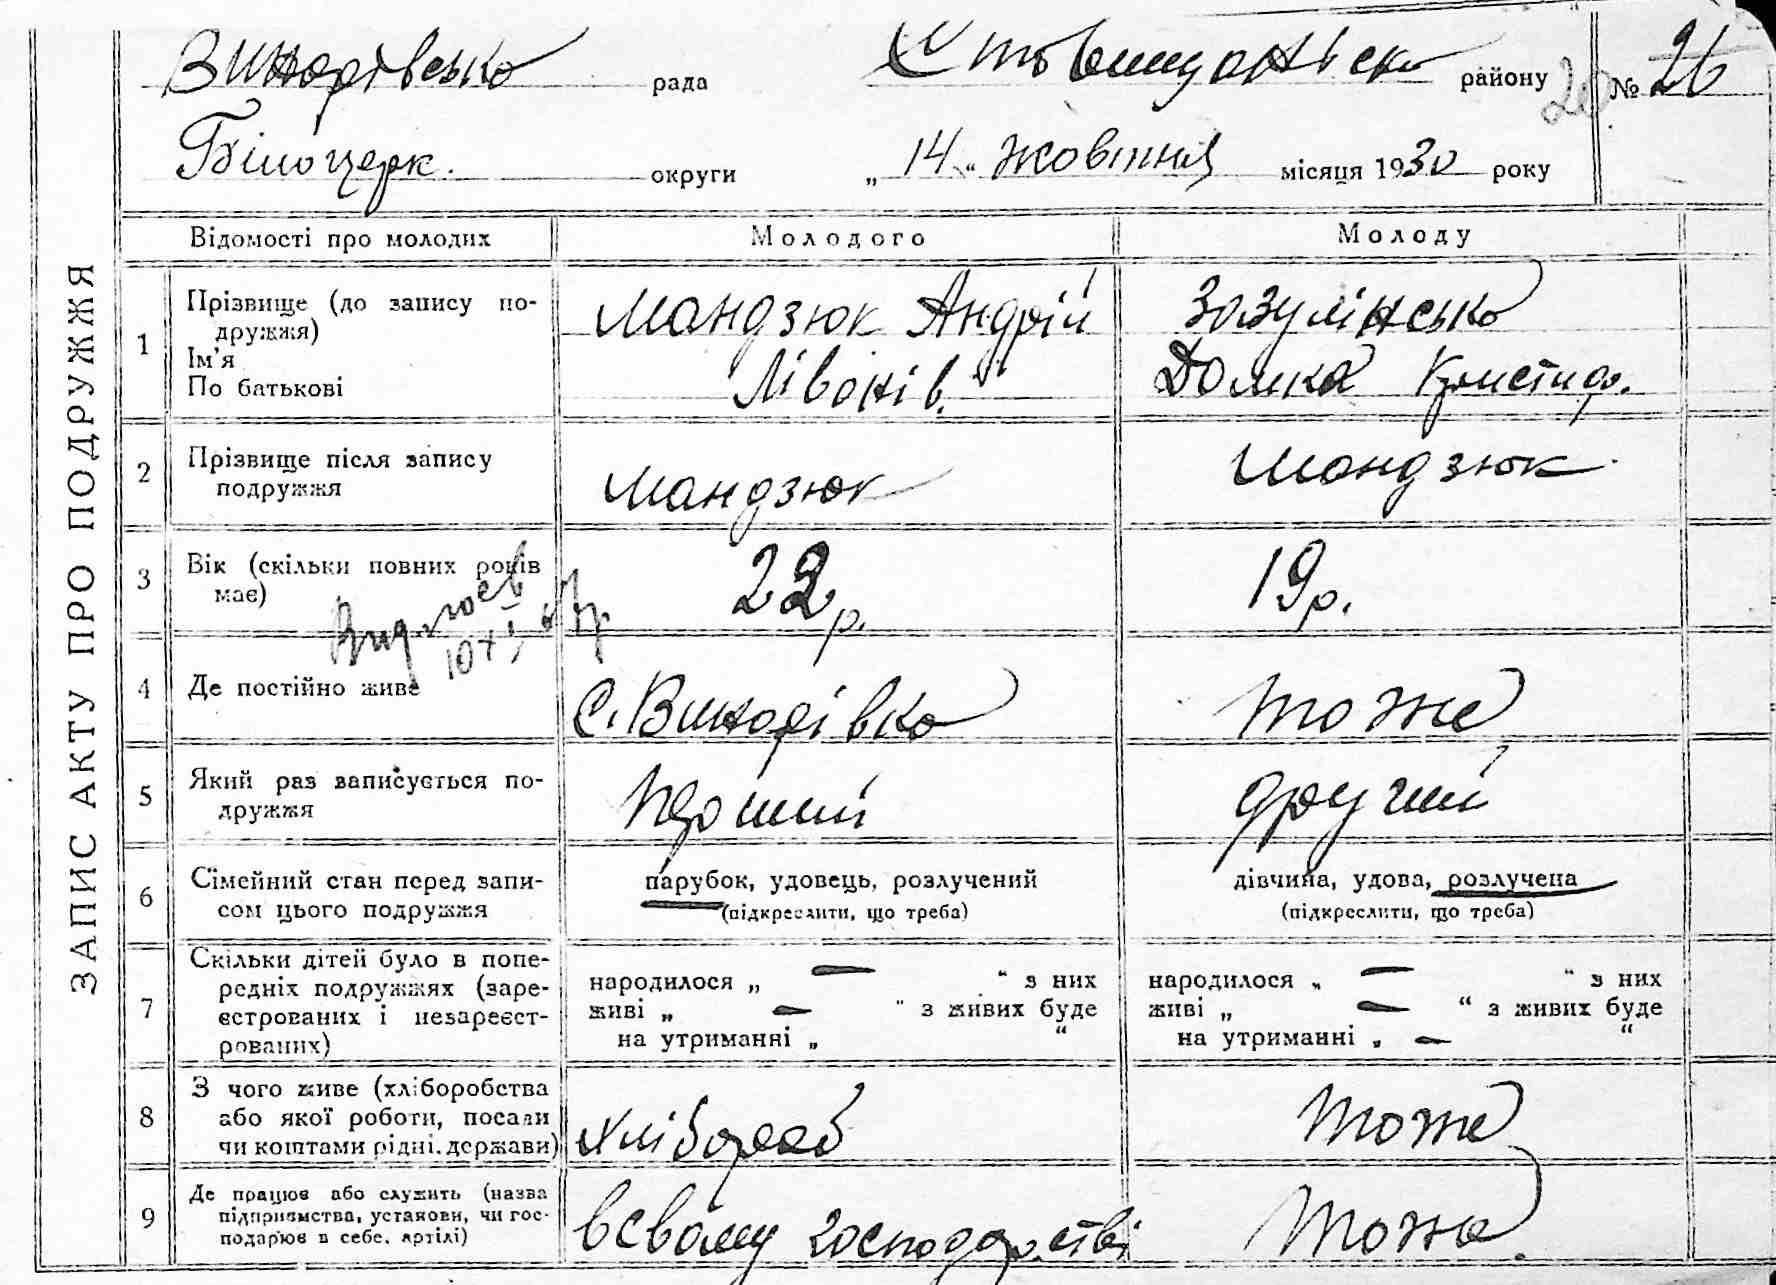 Винарівсько рада Ставищансько району № 26
20
Білоцерк. округи „ 14 “ жовтня місяця 1930 року
ЗАПИС АКТУ ПРО ПОДРУЖЖЯ
Відомості про молодих Молодого Молоду
1 Прізвище (до запису по-
дружжя)
Ім’я
По батькові
Мандзюк Андрій
Зозулінсько
Домка
2 Прізвище після запису
подружжя
Мандзюк
Мандзюк
3 Вік (скільки повних років
має)
22 р.
19 р.
4 Де постійно живе
с. Винарівка
тоже
5 Який раз записується по-
дружжя
перший
другий
6 Сімейний стан перед запи-
сом цього подружжя
парубок, удовець, розлучений
(підкреслити, що треба)
дівчина, удова, розлучена
(підкреслити, що треба)
7 Скільки дітей було в попе-
редніх подружжях (заре-
єстрованих і незареєст-
рованих)
народилося „ — “ з них
живі „ — “ з живих буде
на утриманні „ “
народилося „ — “ з них
живі „ — “ з живих буде
на утриманні „ — “
8 З чого живе (хліборобства
або якої роботи, посади
чи коштами рідні, держави)
хлібороб
тоже
9 Де працює або служить (назва
підприємства, установи, чи гос-
подарює в себе, артілі)
в свому господарстві
тоже